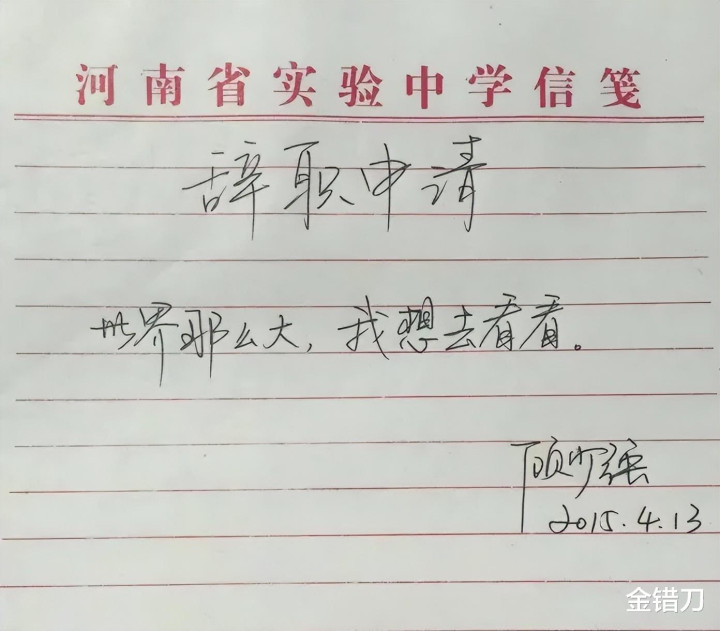 河南省实验中学信笺
辞职申请
世界那么大，我想去看看。
顾少强
2015.4.13
金错刀